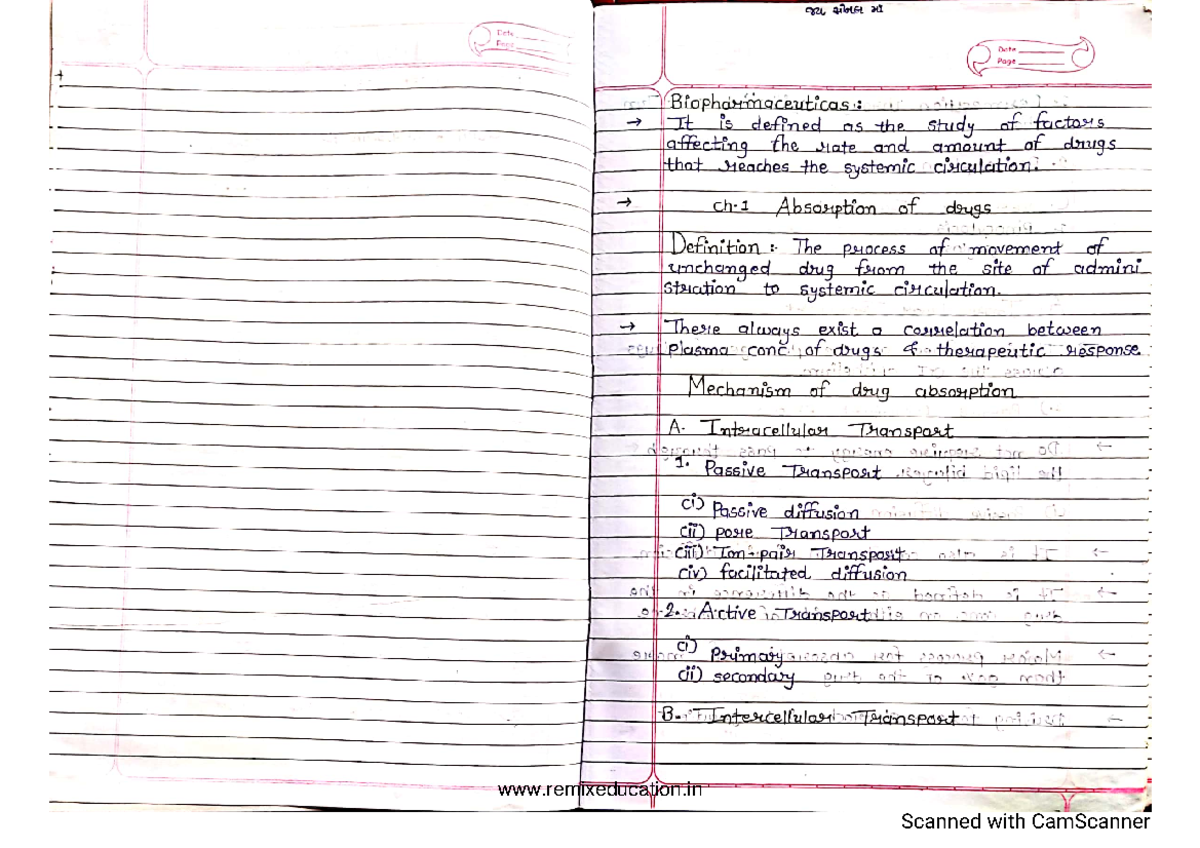 જય અંબે માઁ
Date
Page
Date
Page
Biopharmaceuticas :
→ It is defined as the study of factors
affecting the rate and amount of drugs
that reaches the systemic circulation.
→ ch-1 Absorption of drugs
Definition : The process of movement of
unchanged drug from the site of admini
stration to systemic circulation.
→ There always exist a correlation between
plasma conc. of drugs & therapeutic response.
Mechanism of drug absorption
A. Intracellular Transport
1. Passive Transport
(i) Passive diffusion
(ii) pore Transport
(iii) Ion-pair Transport
(iv) facilitated diffusion
2. Active Transport
(i) Primary
(ii) secondary
B. Intercellular Transport
www.remixeducation.in
Scanned with CamScanner